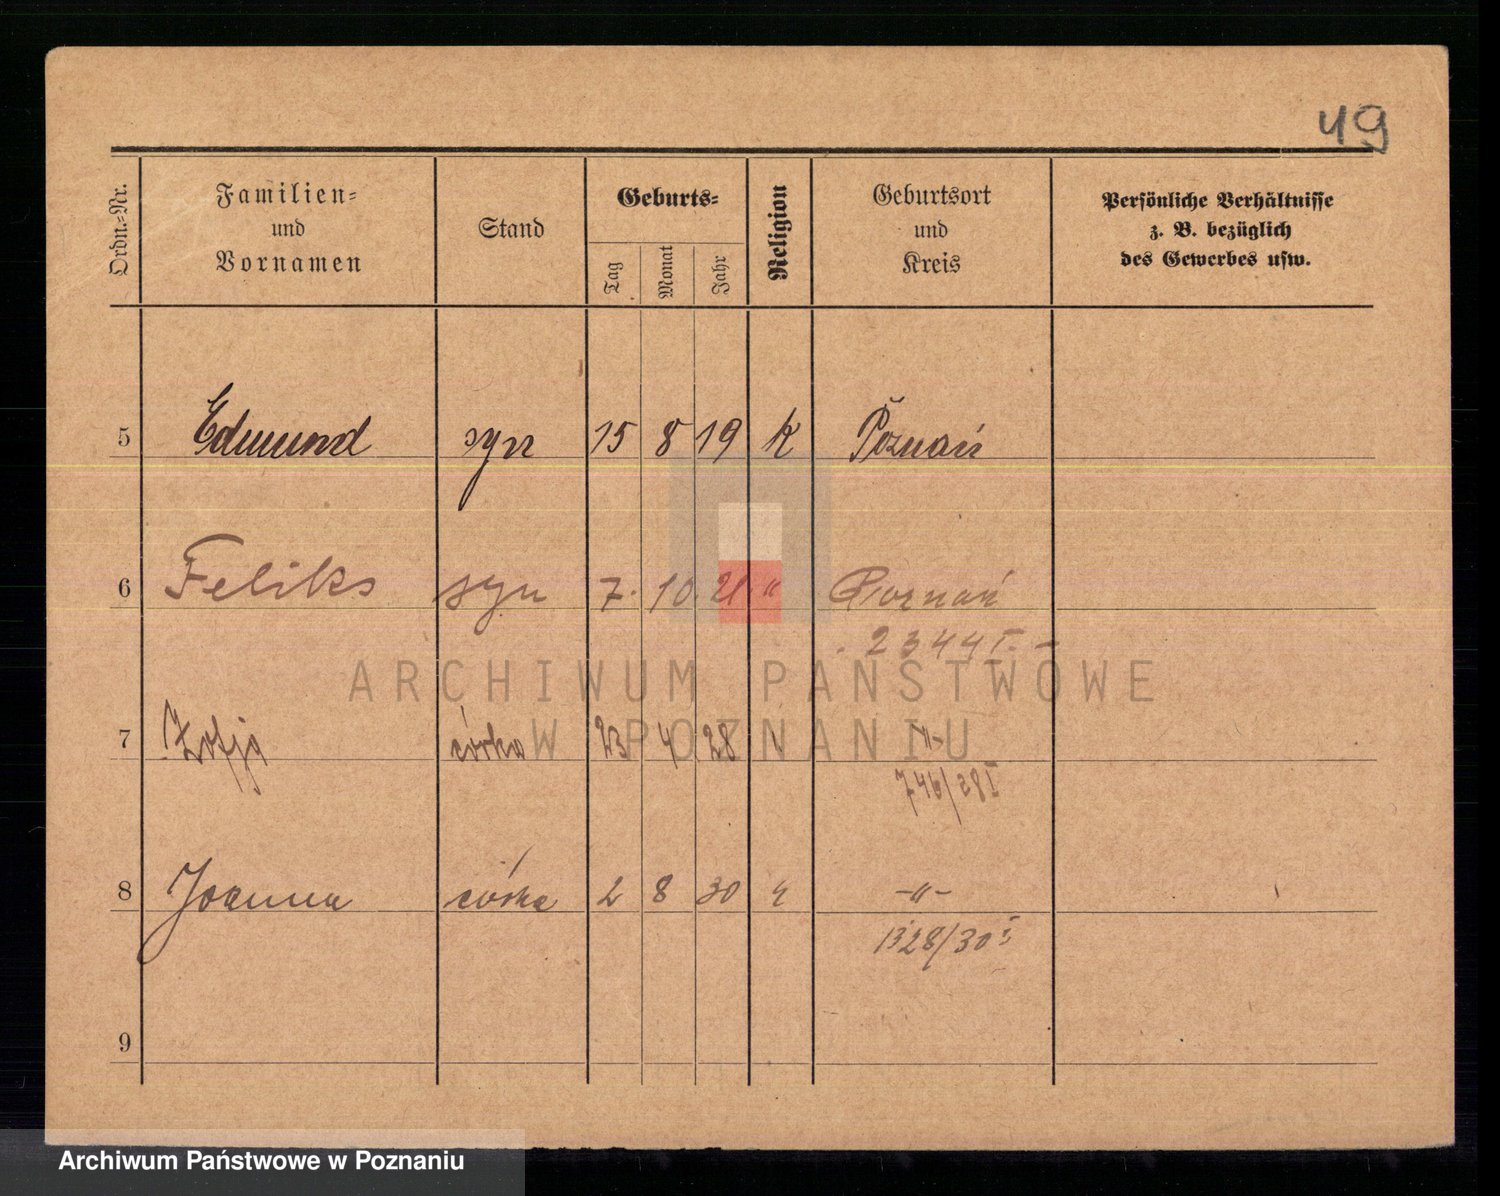 49
Ordn.=Nr.
Familien=
und
Vornamen
Stand
Geburts=
Tag
Monat
Jahr
Religion
Geburtsort
und
Kreis
Persönliche Verhältnisse
z. B. bezüglich
des Gewerbes usw.
5 Edmund syn 15 8 19 K Poznań
6 Feliks syn 7. 10. 21. " Poznań
2344 I. -
ARCHIWUM PAŃSTWOWE
W POZNANIU
7 Zofja córka 23 4 28 -"-
746/28 I
8 Joanna córka 2 8 30 -"-
1328/30 I
9
Archiwum Państwowe w Poznaniu